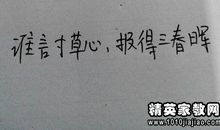 谁言寸草心，报得三春晖
精英家教网
www.1010jiajiao.com